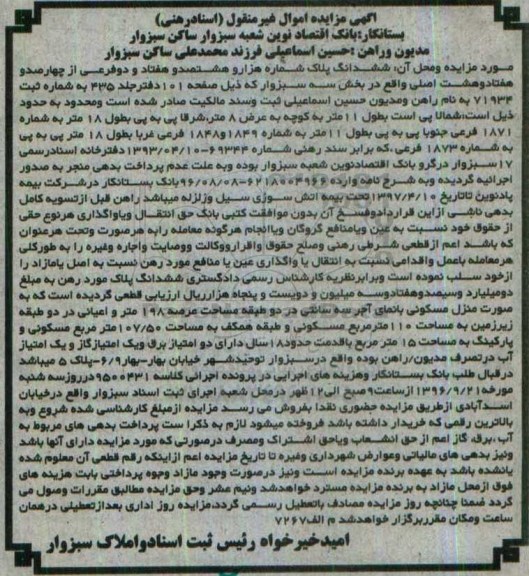 آگهی مزایده اموال غیرمنقول (اسنادرهنی)
بستانکار:بانک اقتصاد نوین شعبه سبزوار ساکن سبزوار
مدیون وراهن :حسین اسماعیلی فرزند محمدعلی ساکن سبزوار
مورد مزایده ومحل آن: ششدانگ پلاک شماره هزارو هشتصدو هفتاد و دوفرعی از چهارصدو
هفتادوهشت اصلی واقع در بخش سه سبزوار که ذیل صفحه ۱۰۱دفترجلد ۴۳۵ به شماره ثبت
۷۱۹۳۴ به نام راهن ومدیون حسین اسماعیلی ثبت وسند مالکیت صادر شده است ومحدود به حدود
ذیل است:شمالا پی است بطول ۱۱متر به کوچه به عرض ۸ متر،شرقا پی به پی بطول ۱۸ متر به شماره
۱۸۷۱ فرعی جنوبا پی به پی بطول ۱۱متر به شماره ۱۸۴۹و۱۸۴۸ فرعی غربا بطول ۱۸ متر پی به پی
به شماره ۱۸۷۳ فرعی،که برابر سند رهنی شماره ۶۹۳۴۴-۱۳۹۳/۰۴/۱۰دفترخانه اسنادرسمی
۱۷سبزوار درگرو بانک اقتصادنوین شعبه سبزوار بوده وبه علت عدم پرداخت بدهی منجر به صدور
اجرائیه گردیده وبه شرح نامه وارده ۶۲۱۸۰۰۴۹۶۶-۹۶/۰۸/۰۸بانک بستانکار درشرکت بیمه
پادنوین تاتاریخ ۱۳۹۷/۴/۱۰تحت بیمه آتش سوزی سیل وزلزله میباشد راهن قبل ازتسویه کامل
بدهی ناشی ازاین قراردادوفسخ آن بدون موافقت کتبی بانک حق انتقال وياواگذاری هرنوع حقی
از حقوق خود نسبت به عین ویامنافع گروگان ویاانجام هرگونه معامله رابه هرصورت وتحت هرعنوان
که باشد اعم ازقطعی شرطی رهنی وصلح حقوق واقراروکالت ووصایت واجاره وغیره را به طورکلی
هرمعامله باعمل واقدامی نسبت به انتقال یا واگذاری عین یا منافع مورد رهن نسبت به اصل یامازاد را
ازخود سلب نموده است وبرابرنظریه کارشناس رسمی دادگستری ششدانگ پلاک مورد رهن به مبلغ
دومیلیارد وسیصدوهفتادوسه میلیون و دویست و پنجاه هزارریال ارزیابی قطعی گردیده است که به
صورت منزل مسکونی بانمای آجر سه سانتی در دو طبقه مساحت عرصه ۱۹۸ متر و اعیانی در دو طبقه
زیرزمین به مساحت ۱۱۰مترمربع مسکونی و طبقه همکف به مساحت ۱۰۷/۵۰متر مربع مسکونی و
پارکینگ به مساحت ۱۵ متر مربع باقدمت حدود۱۸سال دارای دو امتیاز برق ویک امتیازگاز و یک امتیاز
آب درتصرف مدیون/راهن بوده واقع درسبزوار توحیدشهر خیابان بهار-بهار۶/۹-پلاک ۵ میباشد
درقبال طلب بانک بستانکار وهزینه های اجرایی در پرونده اجرائی کلاسه ۹۵۰۰۴۳۱ درروزسه شنبه
مورخه۱۳۹۶/۹/۲۱ ازساعت۹صبح الی۱۲ظهر درمحل شعبه اجرای ثبت اسناد سبزوار واقع درخیابان
اسدآبادی ازطریق مزایده حضوری نقدا بفروش می رسد مزایده ازمبلغ کارشناسی شده شروع وبه
بالاترین رقمی که خریدار داشته باشد فروخته میشود لازم به ذکرا ست پرداخت بدهی های مربوط به
آب ،برق گاز اعم از حق انشعاب ویاحق اشتراک ومصرف درصورتی که مورد مزایده دارای آنها باشد
ونیز بدهی های مالیاتی وعوارض شهرداری وغیره تا تاریخ مزایده اعم ازاینکه رقم قطعی آن معلوم شده
یانشده باشد به عهده برنده مزایده است ونیز درصورت وجود مازاد وجوه پرداختی بابت هزینه های
فوق ازمحل مازاد به برنده مزایده مسترد خواهدشد ونیم عشر وحق مزایده مطالبق مقررات وصول می
گردد ضمنا چنانچه روز مزایده مصادف باتعطیل رسمی گردد،مزایده روز اداری بعدازتعطیلی درهمان
ساعت ومکان مقرربرگزار خواهدشد م الف۷۲۶۷
امیدخیرخواه رئیس ثبت اسنادواملاک سبزوار